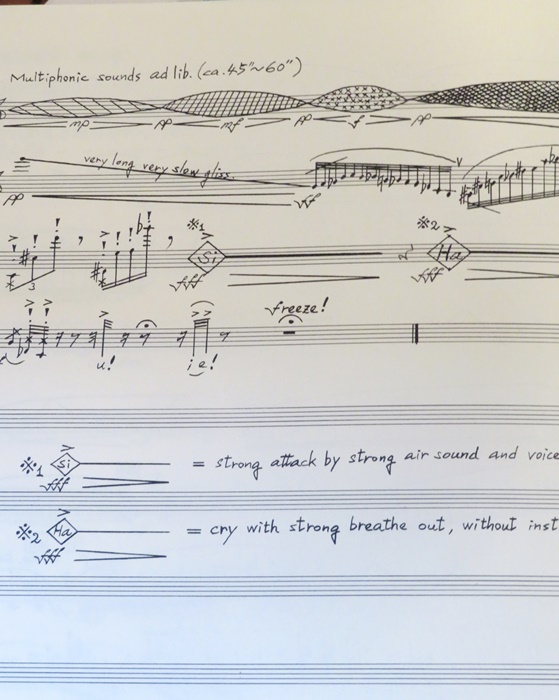 Multiphonic sounds ad lib. (ca. 45"~60")
pp mp pp mf pp f pp
very long very slow gliss.
pp fff
3 ※1 Si fff ※2 Ha fff
u! i e! freeze!
※1 Si fff = strong attack by strong air sound and voice
※2 Ha fff = cry with strong breathe out, without inst